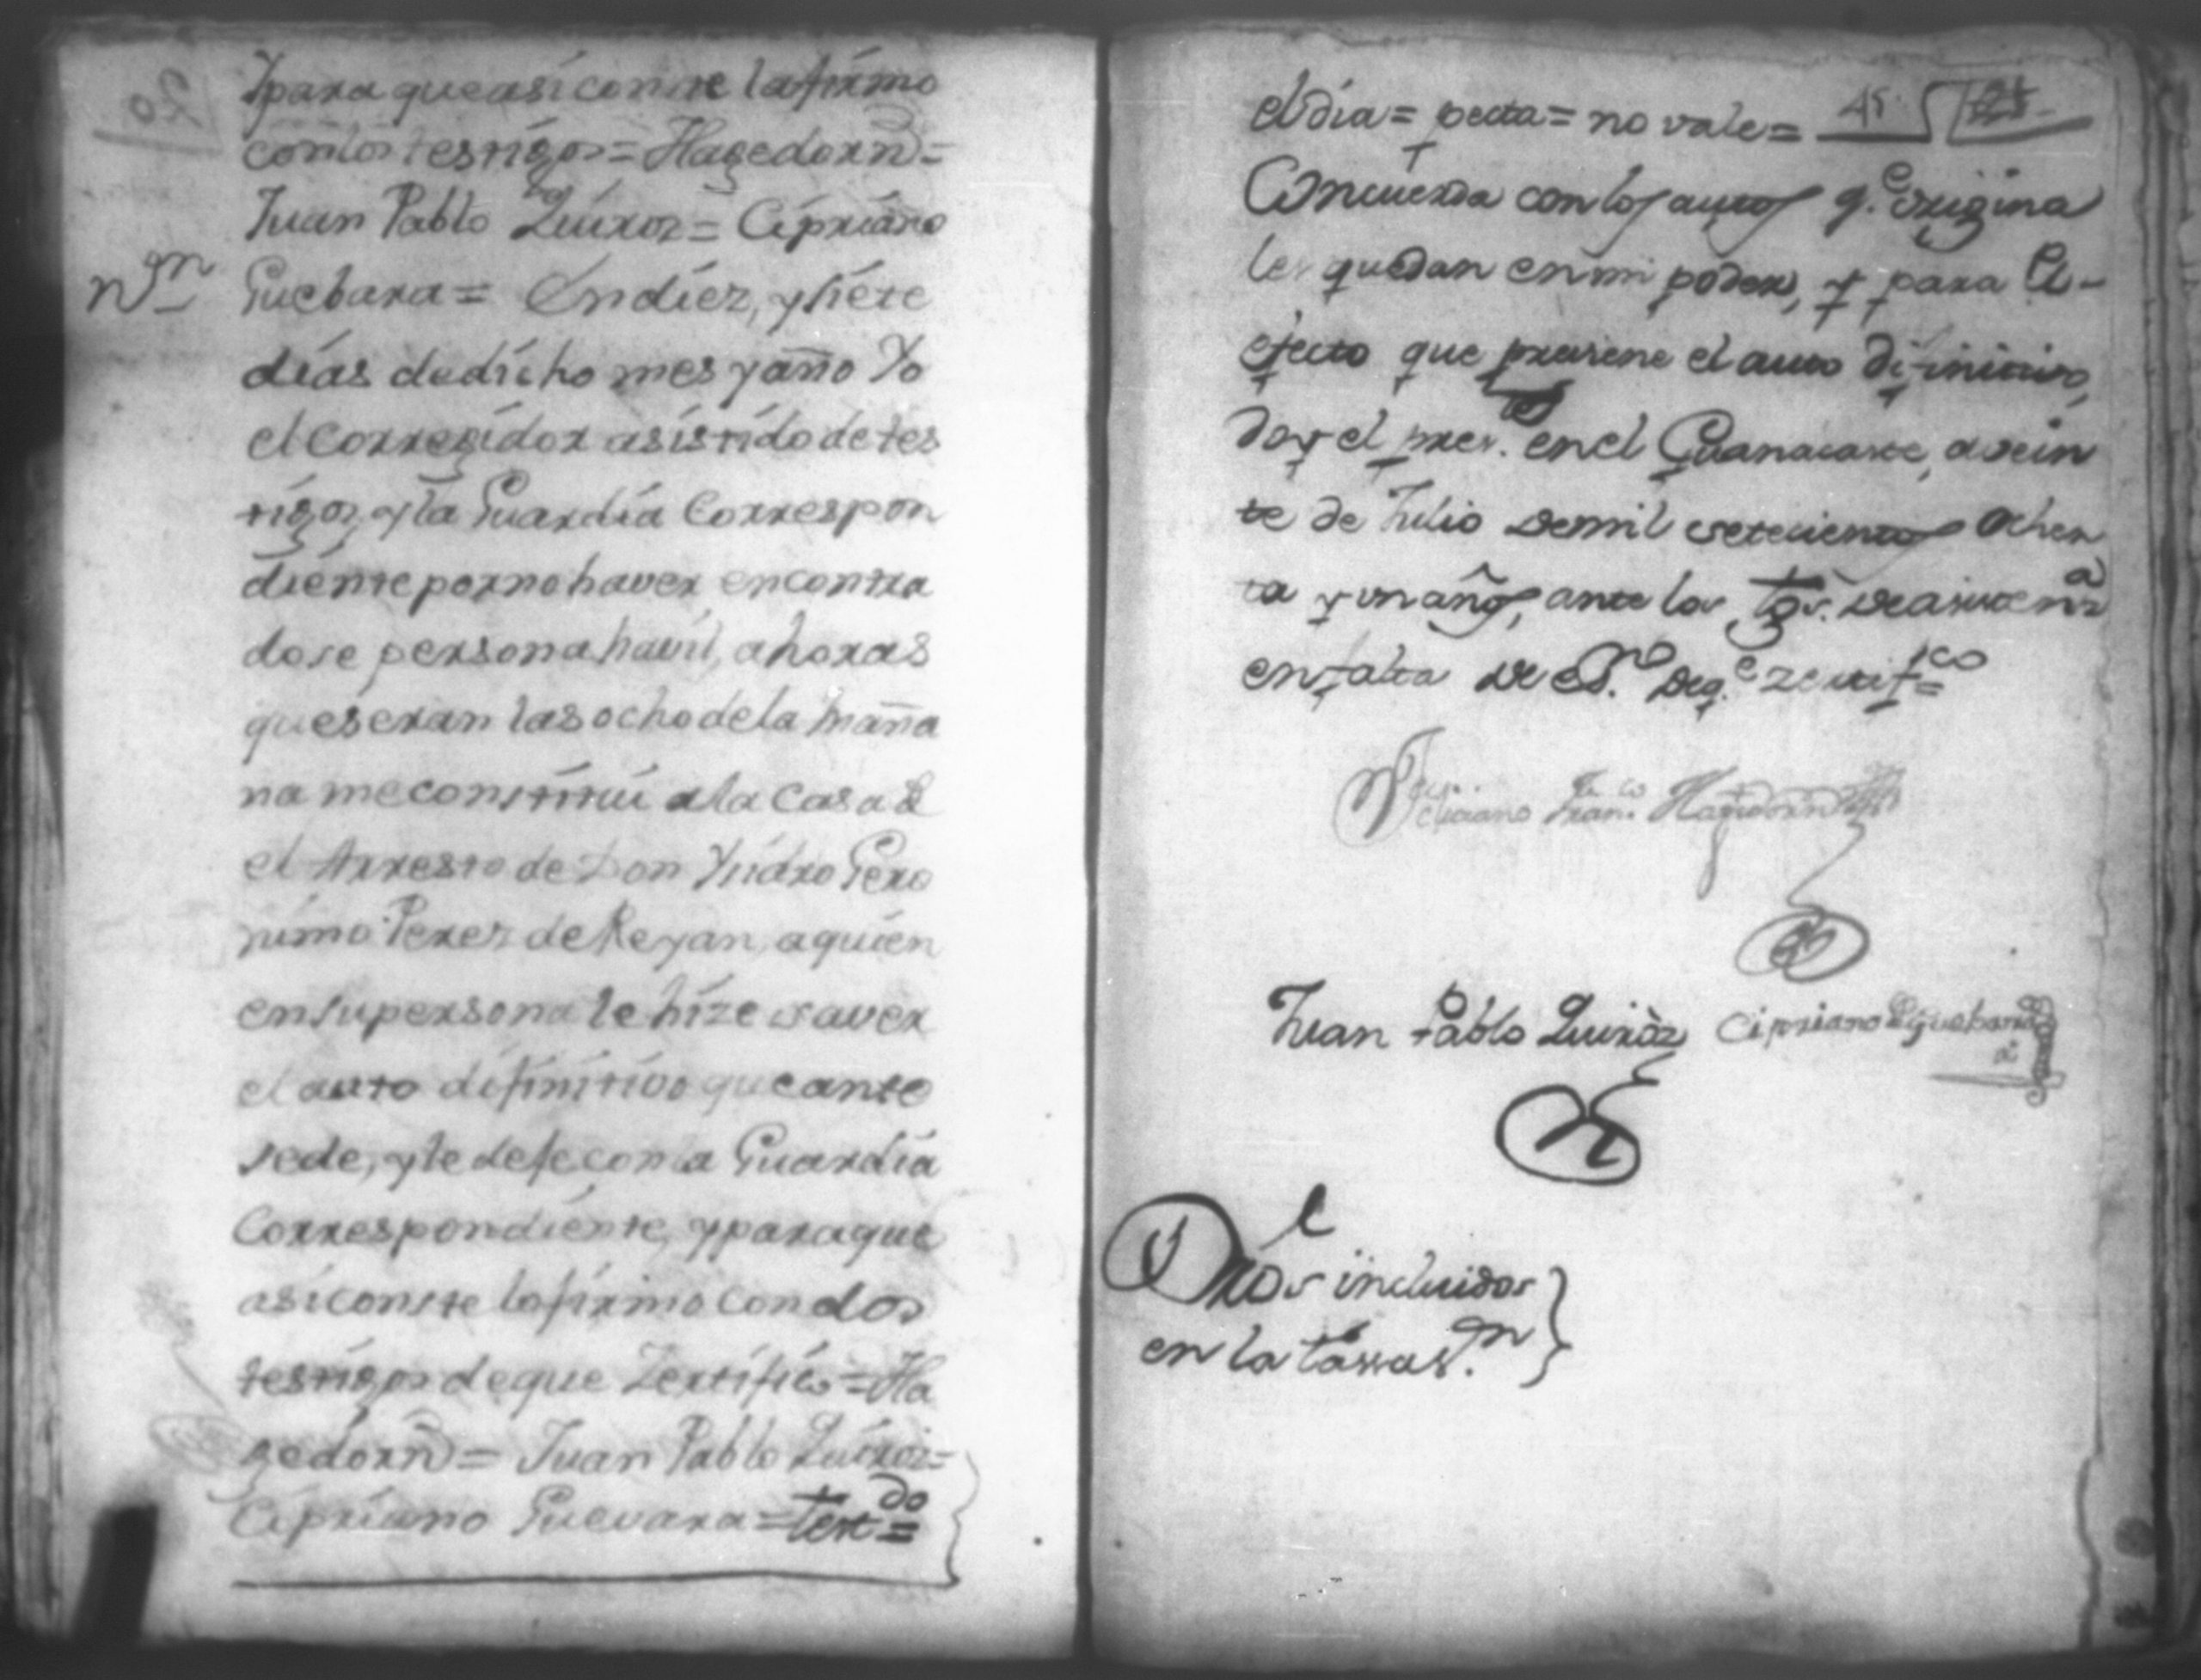 Ypara queasi conste lafirmo
conlos testigos = Hagedorn =
Juan Pablo Quiros = Cipriano
nn Guebara = En diez, y siete
dias dedicho mes y año Yo
el Corregidor asistido de tes
tigos, y la Guardia Correspon
diente por no haver encontra
dose persona havil, a horas
que seran las ocho dela maña
na me constitui ala Casa de
el Arresto de Don Ysidro Gero
nimo Perez de Reyan, aquien
en su persona le hize saver
el auto difinitivo que ante
sede, y le deje con la Guardia
Correspondiente, y para que
asi conste lo firmo con dos
testigos de que Zertifico = Ha
gedorn = Juan Pablo Quiros =
Cipriano Guevara = testdo =
el dia = pecta = no vale = 45
Concuerda con los autos q.e origina
les quedan en mi poder, y para el
efecto que previene el auto difinitivo,
doy el pres.te en el Guanacaste, a vein
te de Julio de mil setecientos ochen
ta y un años, ante los tgos. de asistena
en falta de Esno de q.e zertifco
Feliciano Franco Hagedorn
Juan Pablo Quiròz Cipriano Guebara
Dros incluidos
en la tassas.n